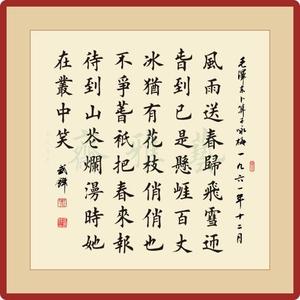 毛澤东卜算子咏梅一九六一年十二月
風雨送春歸飛雪迎
春到已是懸崖百丈
冰猶有花枝俏俏也
不爭春衹把春來報
待到山花爛漫時她
在叢中笑